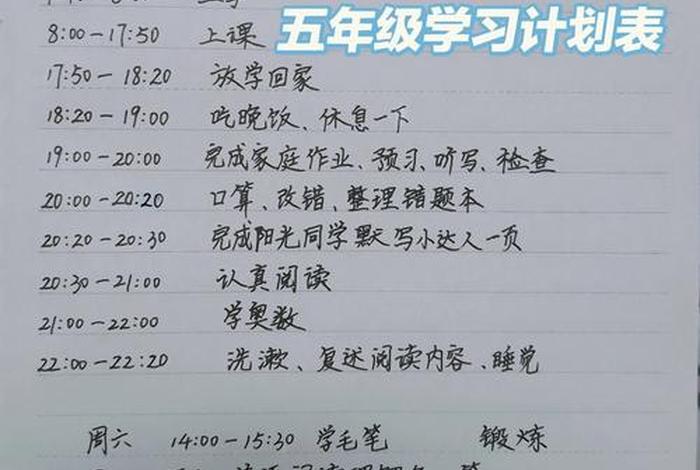 五年级学习计划表
8:00-17:50 上课
17:50-18:20 放学回家
18:20-19:00 吃晚饭、休息一下
19:00-20:00 完成家庭作业、预习、听写、检查
20:00-20:20 口算、改错、整理错题本
20:20-20:30 完成阳光同学默写小达人一页
20:30-21:00 认真阅读
21:00-22:00 学奥数
22:00-22:20 洗漱、复述阅读内容、睡觉
周六 14:00-15:30 学毛笔 锻炼